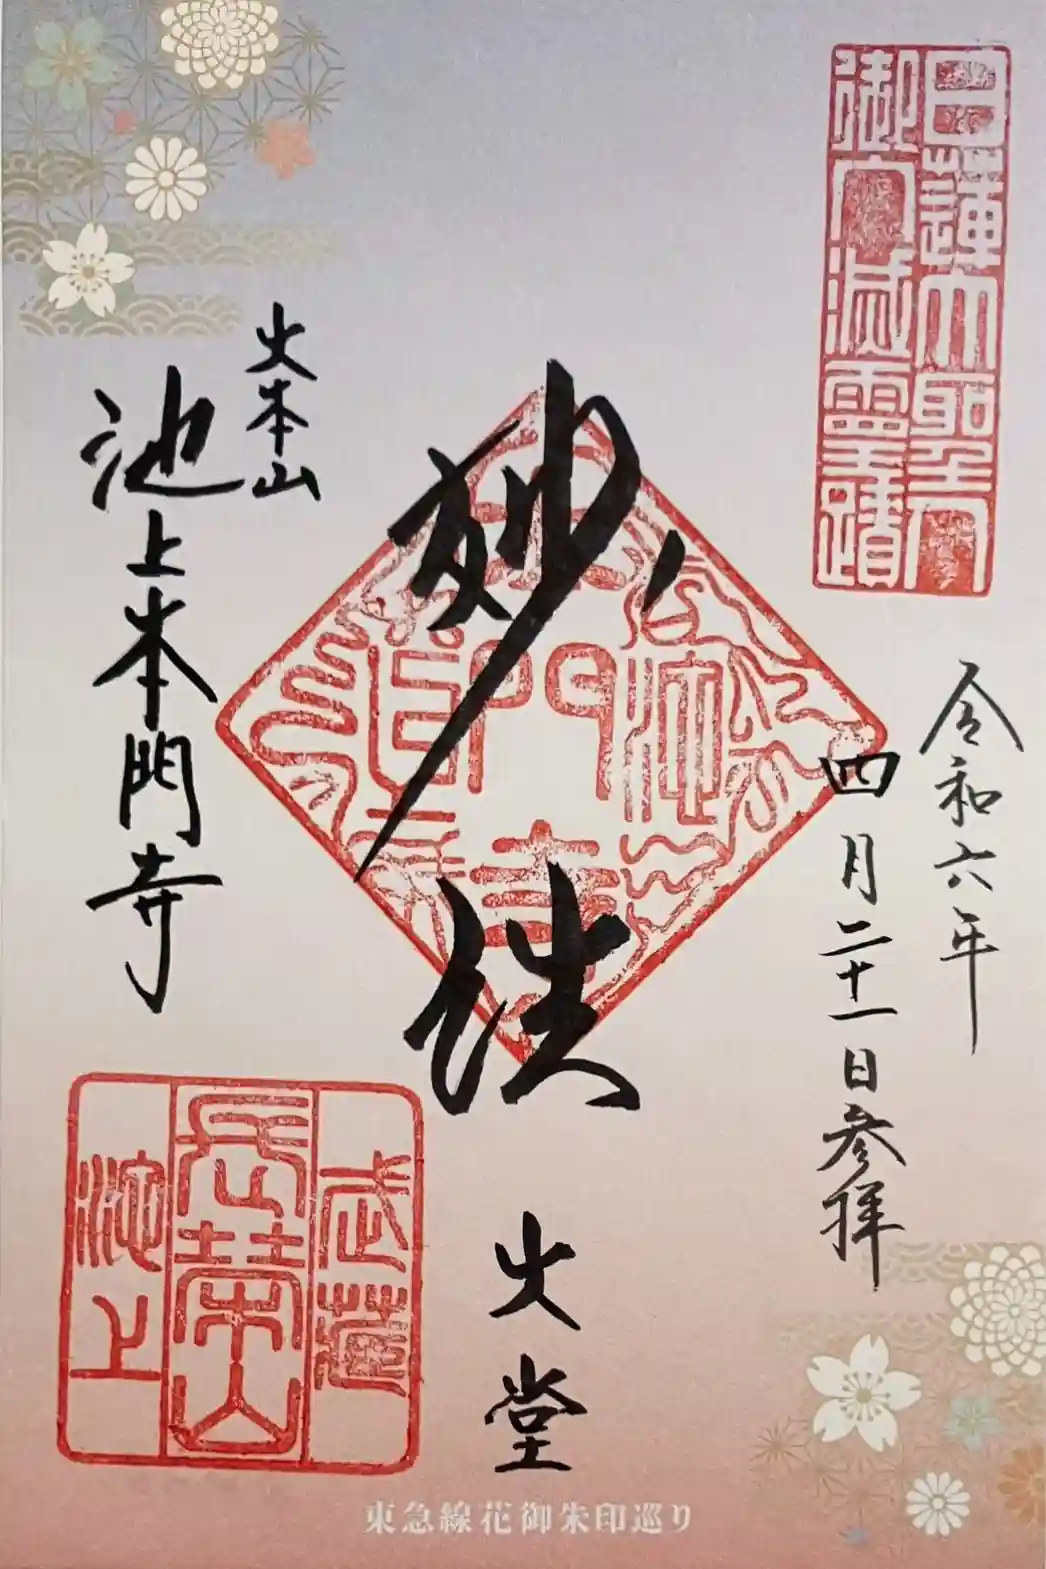 日蓮大聖人
御入滅霊蹟
令和六年
四月二十一日参拝
妙法
大堂
大本山
池上本門寺
武蔵
長栄山
池上
東急線花御朱印巡り